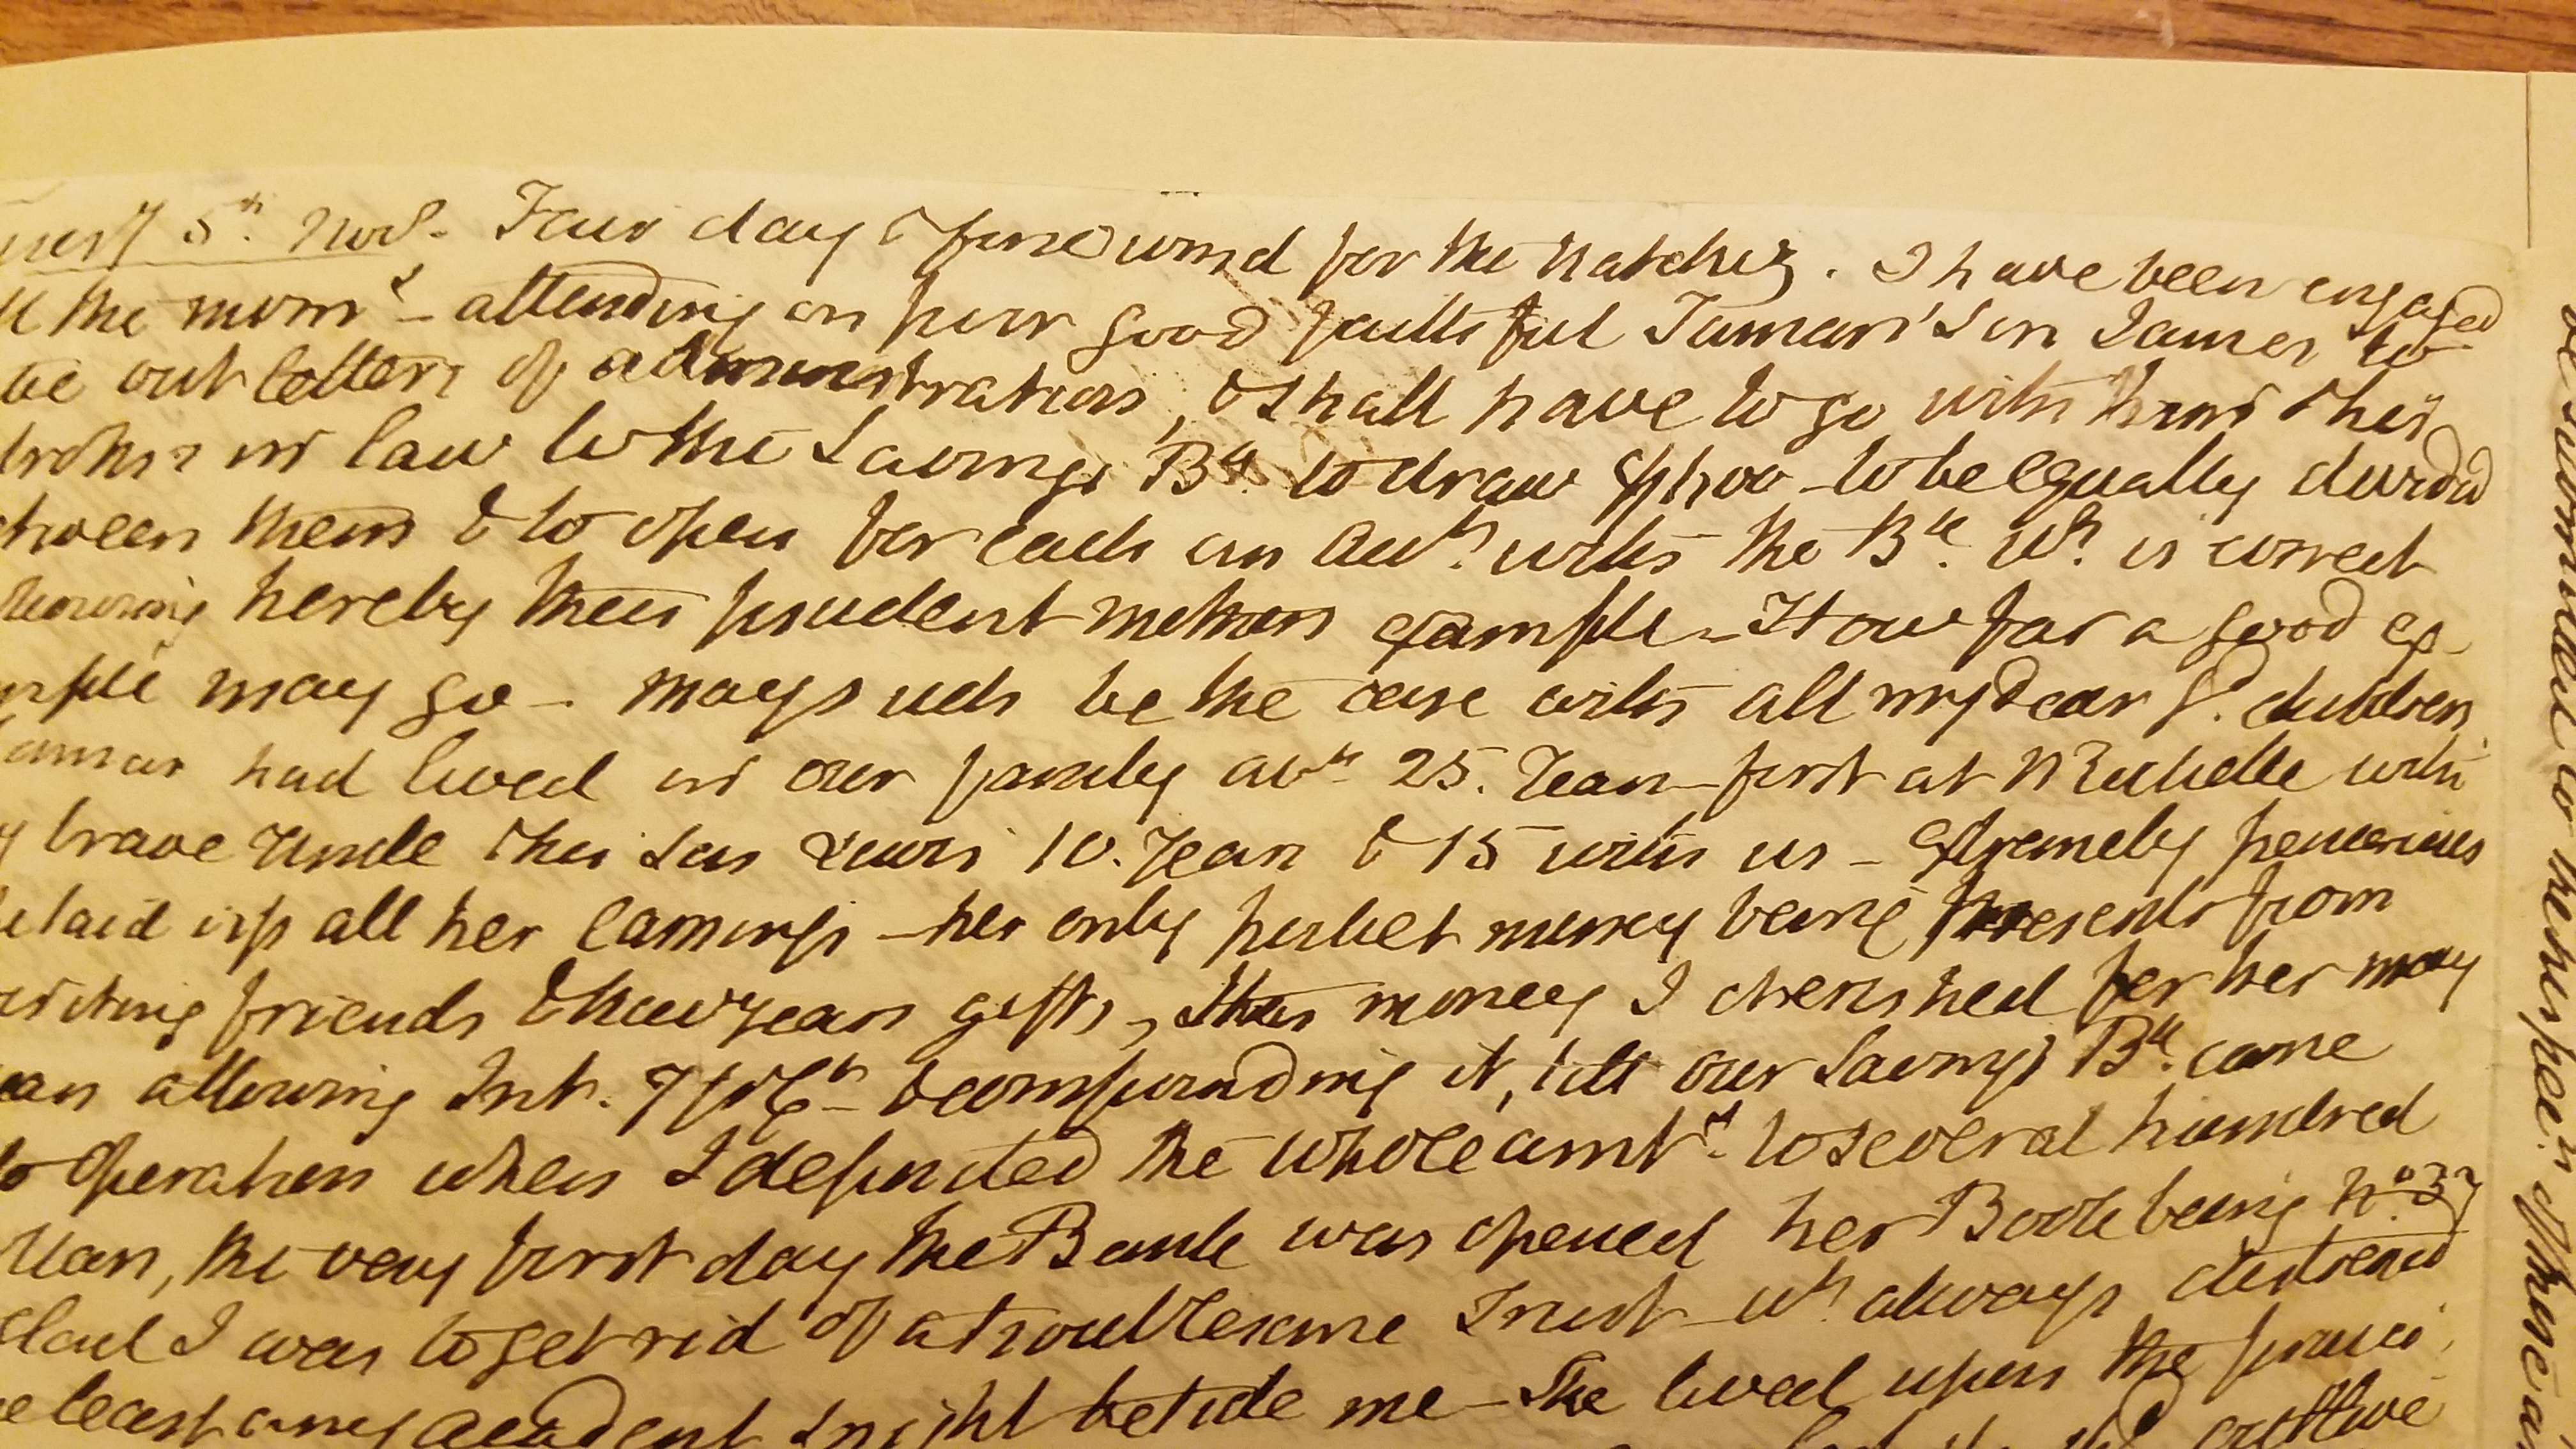 5th. Nov. Fair day & fine wind for the Natchez. I have been engaged
the morng - attending on poor good faithful Tamar's son James to
out letters of administration, & shall have to go with him & his
in law to the Savings Bk. to draw to be equally divided
them & to open for each an Acct. with the Bk. wh. is correct
hereby their prudent mothers example - How far a good ex-
may go - may such be the case with all my dear Gd. children
had lived in our family abt. 25. Years first at N Rochelle with
brave Uncle & his son Lewis 10. Years & 15 with us - Extremely penurious
laid up all her earnings - her only pocket money being presents from
friends & New years gifts, this money I cherished for her many
allowing Int. 7 & compounding it, till our Savings Bk. came
to Operation when I deposited the whole amtg. to several hundred
the very first day the Bank was opened her Book being No. 37
I was to get rid of a troublesome Trust wh. always distressed
least any accident might betide me - She lived upon the